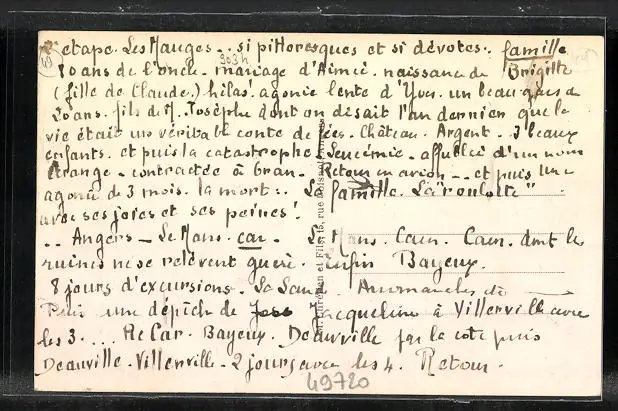 etape. Les Mauges.. si pittoresques et si dévotes: famille
80 ans de l'oncle. mariage d'Aimée. naissance de Brigitte
(fille de Claude.) hélas. agonie lente d'Yves. un beau gars de
20 ans. fils de J. Josèphe dont on disait l'an dernier que la
vie était un véritable conte de fées. Château. Argent. 3 beaux
enfants. et puis la catastrophe. Leucémie. affublée d'un nom
étrange. contractée à Oran. Retour en avion -- et puis une
agonie de 3 mois. la mort:. La famille. La "roulotte"
avec ses joies et ses peines!
.. Angers _ Le Mans. car. Le Mans. Caen. Caen. dont les
ruines ne se relèvent guère. Enfin Bayeux.
8 jours d'excursions. Arromanches de
Puis une dépêche de Jacqueline à Villerville avec
les 3.... Re Car. Bayeux. Deauville par la côte puis
Deauville. Villerville. 2 jours avec les 4. Retour.
49720